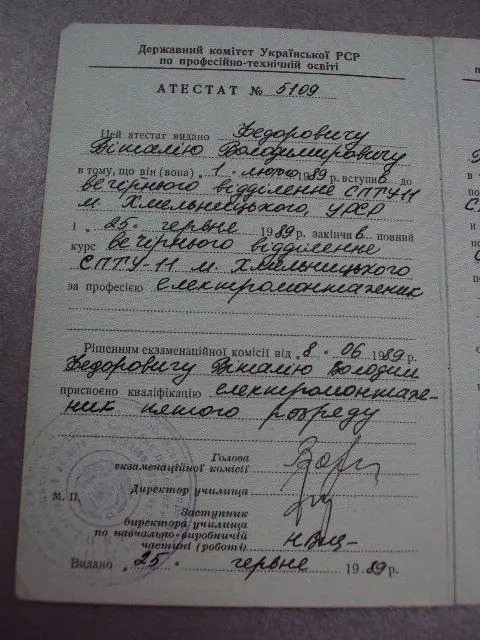 Державний комітет Української РСР
по професійно-технічній освіті
АТЕСТАТ № 5109
Цей атестат видано Федоровичу
Віталію Володимировичу
в тому, що він (вона) „1 " лютого 1989 р. вступив до
вечірнього відділенне СПТУ-11
м. Хмельницького, УРСР
і „25." червне 1989 р. закінчив повний
курс вечірнього відділенне
СПТУ-11 м. Хмельницького
за професією електромонтаженик
Рішенням екзаменаційної комісії від „8." 06 1989 р.
Федоровичу Віталію Володим
присвоєно кваліфікацію електромонтаже-
ник пятого розреду
Голова
екзаменаційної комісії
М. П. Директор училища
Заступник
директора училища
по навчально-виробничій
частині (роботі)
Видано „25." червне 1989 р.